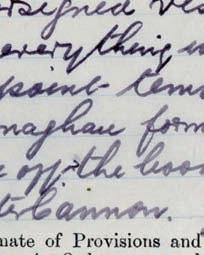 signed res
everything in
point- tem
naghan form
off the boo
Cannon.
mate of Provisions and